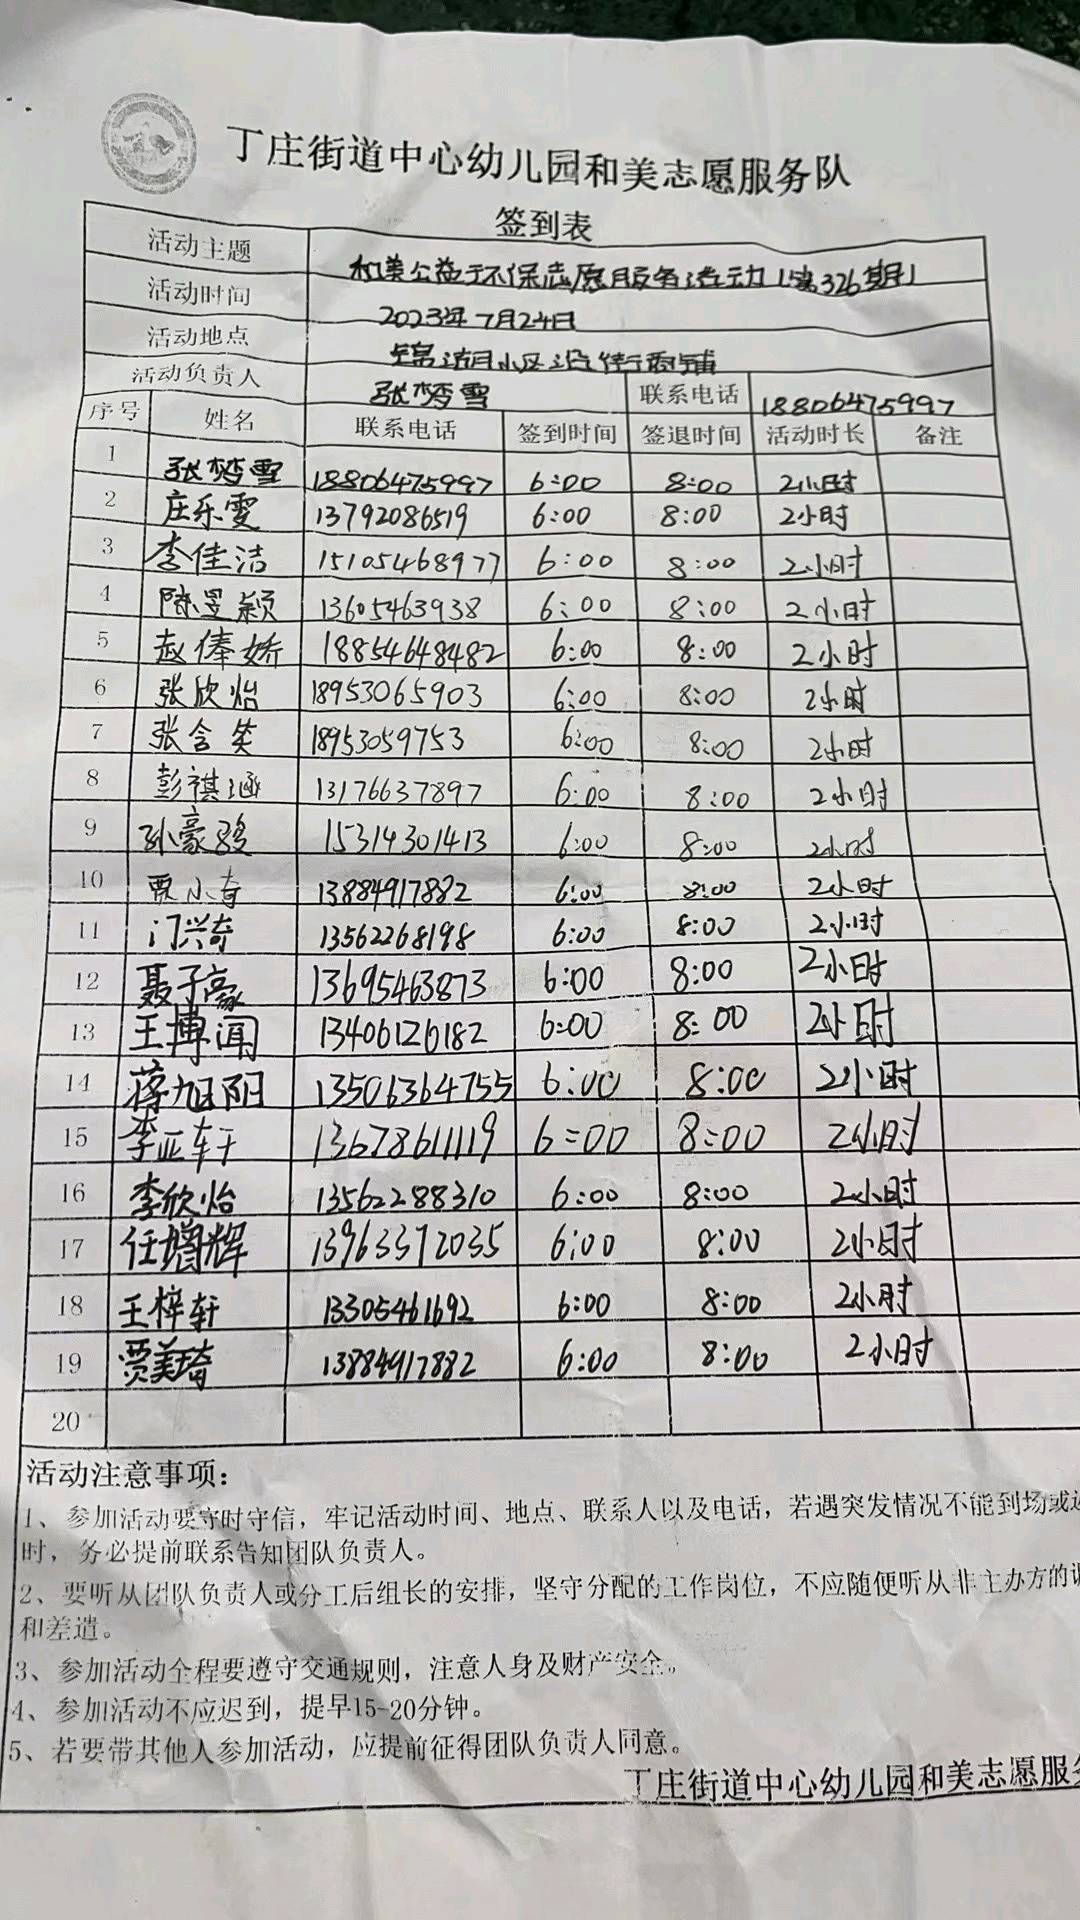 丁庄街道中心幼儿园和美志愿服务队
签到表
活动主题 和美公益环保志愿服务活动(第326期)
活动时间 2023年7月24日
活动地点 锦湖月小区沿街商铺
活动负责人 张梦雪 联系电话 18806475997
序号 姓名 联系电话 签到时间 签退时间 活动时长 备注
1 张梦雪 18806475997 6:00 8:00 2小时
2 庄乐雯 13792086519 6:00 8:00 2小时
3 李佳洁 15105468977 6:00 8:00 2小时
4 陈昱颖 13605463938 6:00 8:00 2小时
5 赵俸娇 18854648482 6:00 8:00 2小时
6 张欣怡 18953065903 6:00 8:00 2小时
7 张含笑 18953059753 6:00 8:00 2小时
8 彭祺涵 13176637897 6:00 8:00 2小时
9 孙豪 15314301413 6:00 8:00 2小时
10 贾小奇 13884917882 6:00 8:00 2小时
11 门兴奇 13562268198 6:00 8:00 2小时
12 聂子豪 13695463873 6:00 8:00 2小时
13 王博闻 13406126182 6:00 8:00 2小时
14 蒋旭阳 13506364755 6:00 8:00 2小时
15 李亚轩 13678611119 6:00 8:00 2小时
16 李欣怡 13562288310 6:00 8:00 2小时
17 任增辉 13963372035 6:00 8:00 2小时
18 王梓轩 13305461692 6:00 8:00 2小时
19 贾美琦 13884917882 6:00 8:00 2小时
20
活动注意事项：
1、参加活动要守时守信，牢记活动时间、地点、联系人以及电话，若遇突发情况不能到场或
时，务必提前联系告知团队负责人。
2、要听从团队负责人或分工后组长的安排，坚守分配的工作岗位，不应随便听从非主办方的
和差遣。
3、参加活动全程要遵守交通规则，注意人身及财产安全。
4、参加活动不应迟到，提早15-20分钟。
5、若要带其他人参加活动，应提前征得团队负责人同意。
丁庄街道中心幼儿园和美志愿服